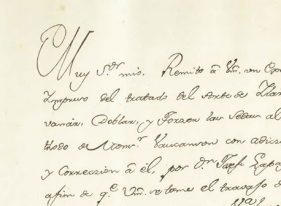 Muy S.or mio. Remito à Vm. un
Impreso del tratado del Arte de
Doblar, y Forzar las Sedas al
de Mons.r Vaucanson con
y Correccion à él, por D.n Josef
afin de q.e Vm. se tome el travajo de